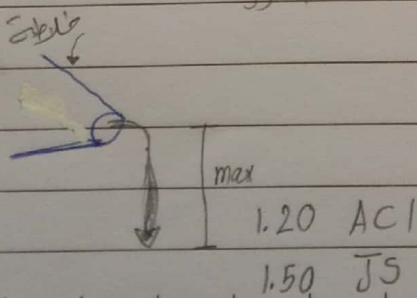 خلاطة
max
1.20 ACI
1.50 JS